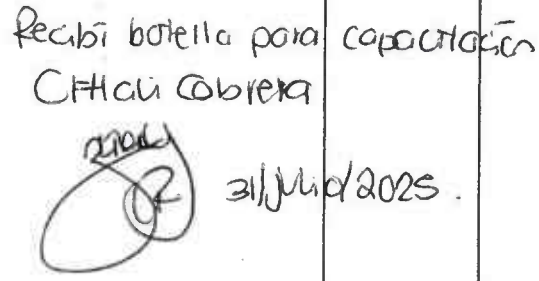 Recibí botella para capacitación
Citlali Cobrera
31/Julio/2025.